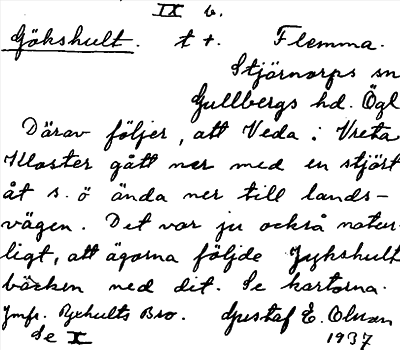 IX b.
Gökshult. t +. Flemma.
Stjärnorps sn
Gullbergs hd. Ögl
Därav följer, att Veda i Vreta
Kloster gått ner med en stjärt
åt s. ö ända ner till lands-
vägen. Det var ju också natur-
ligt, att ägorna följde Jykshult
bäcken ned dit. Se kartorna.
Jmfr. Ryxhults Bro. Gustaf E. Olsson
Se X 1937